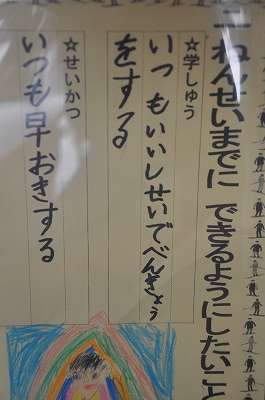 二ねんせいまでに できるようにしたいこと
☆学しゅう
いつもいいしせいでべんきょう
をする
☆せいかつ
いつも早おきする